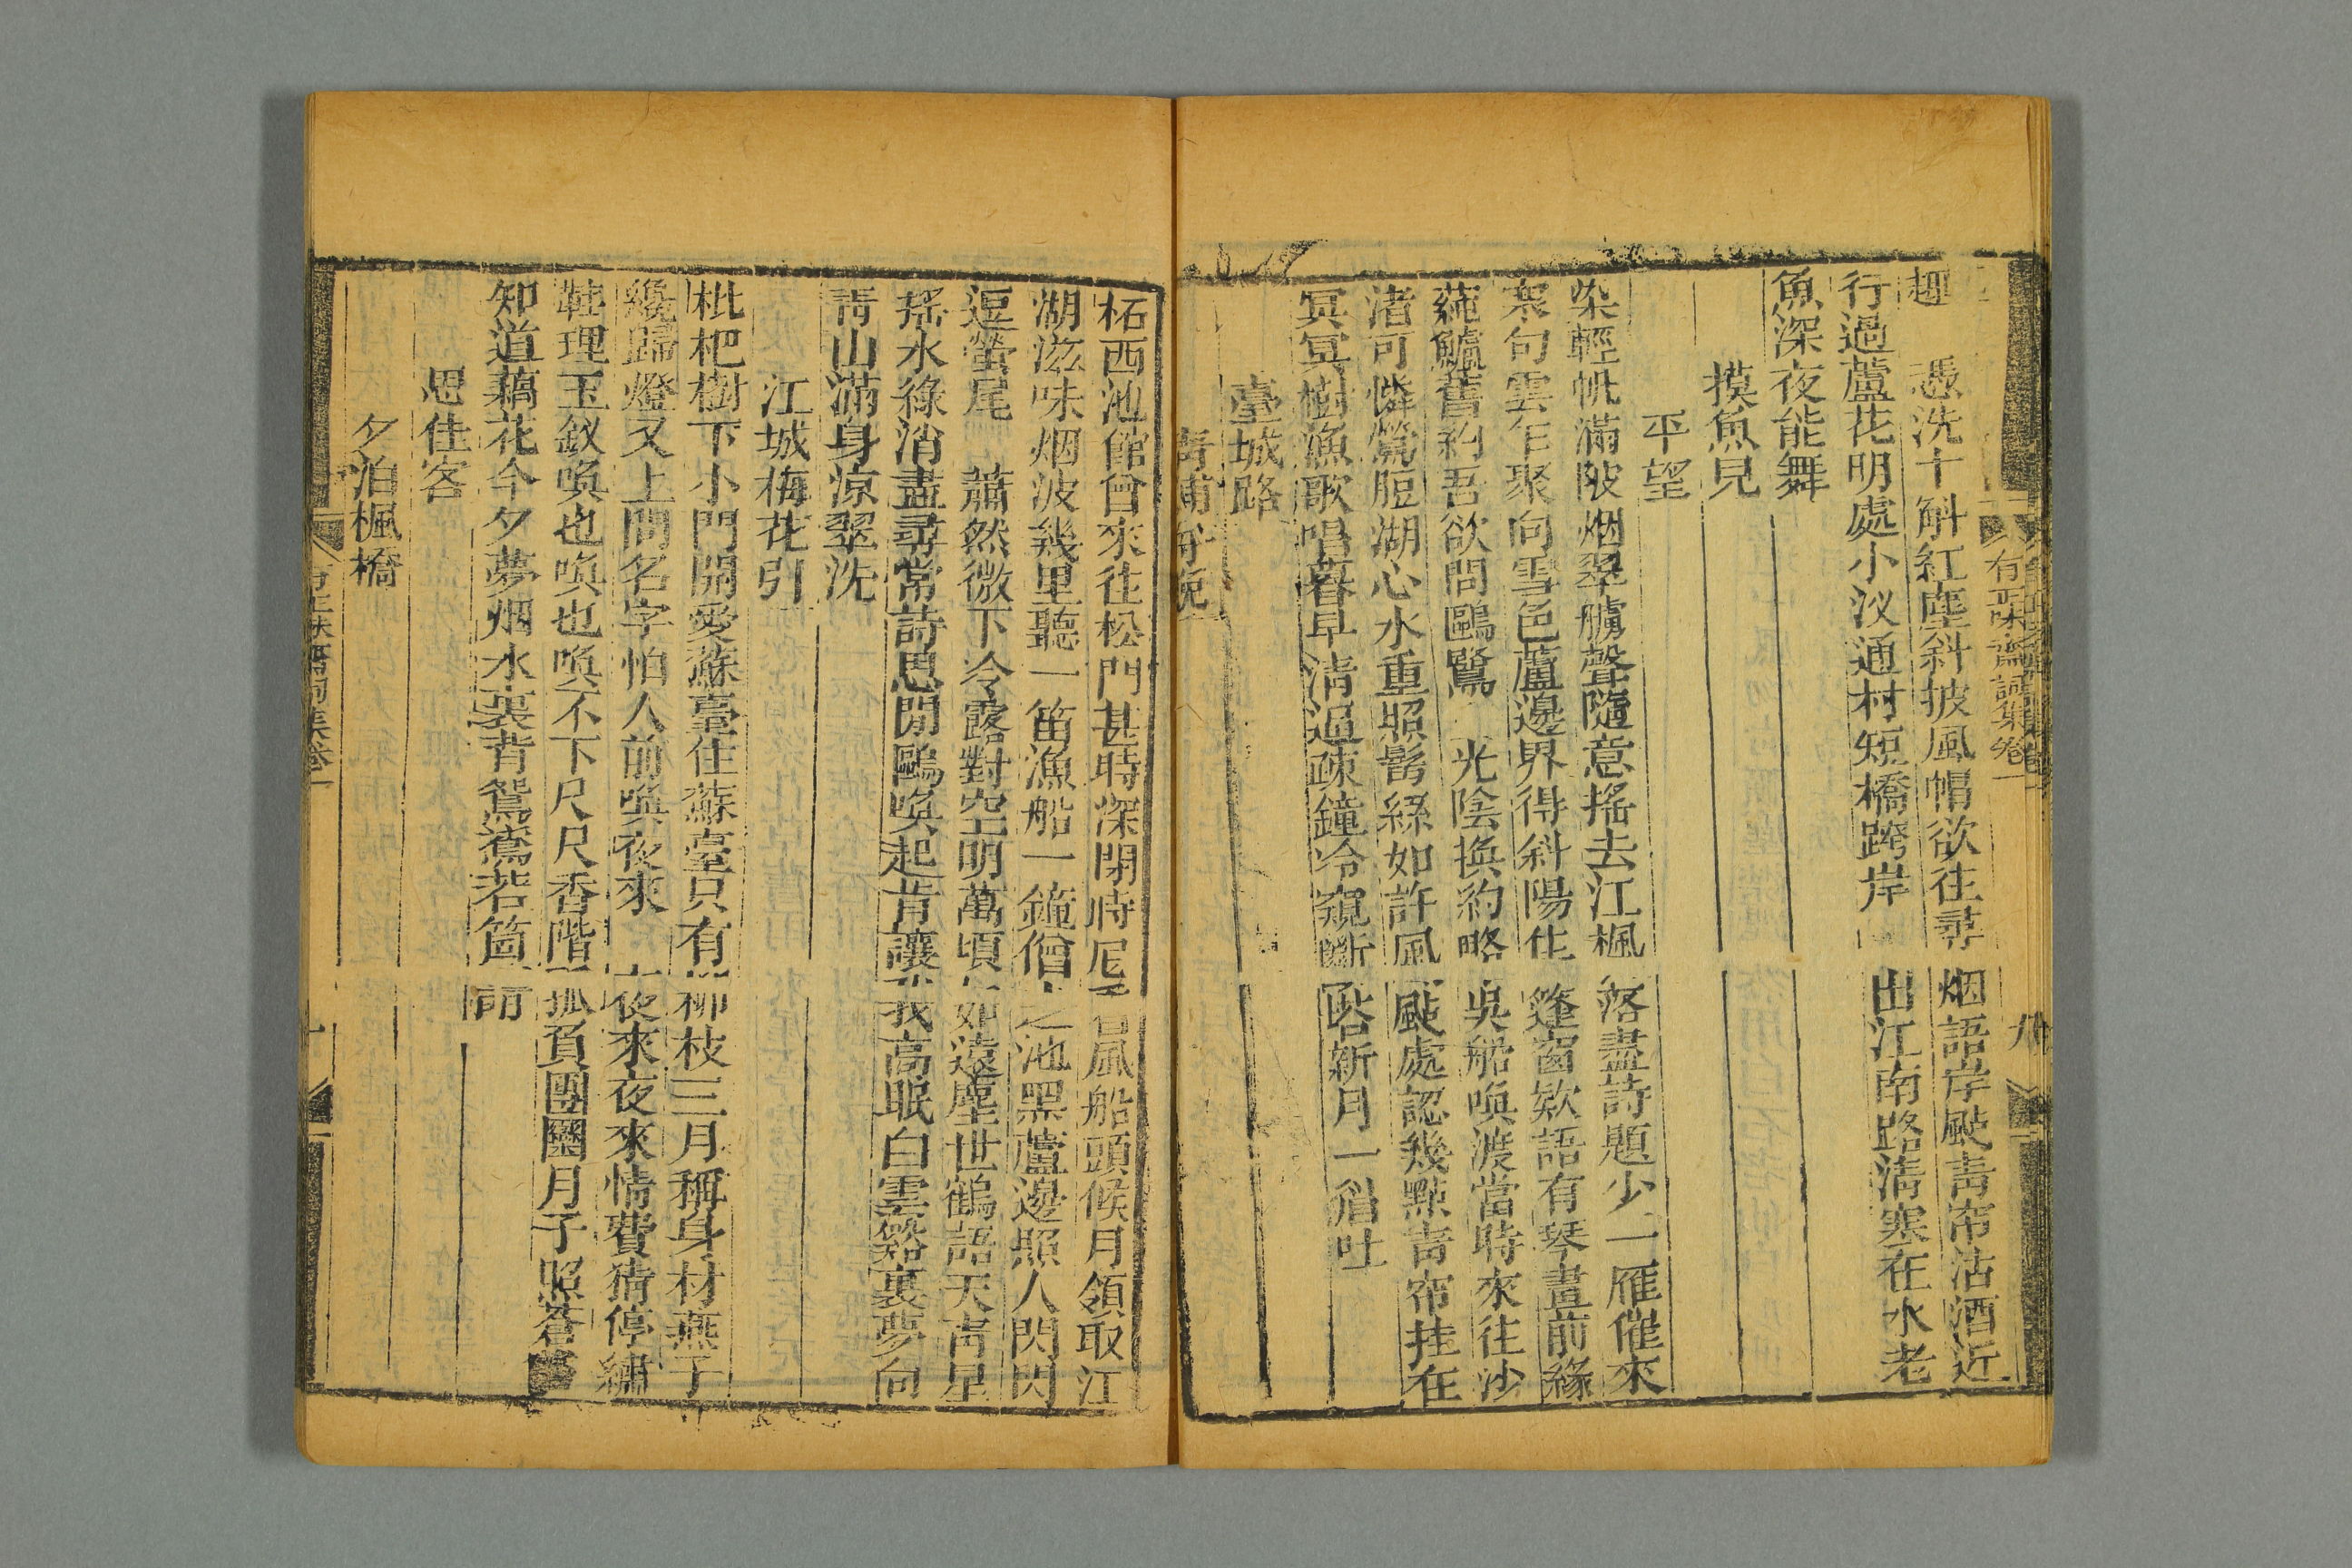 有正味齋詞集卷一
九
趣　憑洗十斛紅塵斜披風帽欲往尋烟語岸颭青帘沽酒近
行過蘆花明處小汊通村短橋跨岸　出江南路清寒在水老
魚深夜能舞
摸魚兒
平望
染輕帆滿陂烟翠艣聲隨意搖去江楓落盡詩題少一雁催來
寒句雲乍聚向雪色蘆邊界得斜陽住篷窗欵語有琴畫前緣
蓴鱸舊約吾欲問鷗鷺　光陰換約略吳船喚渡當時來往沙
渚可憐鶯脰湖心水重照鬂絲如許風颭處認幾點青帘挂在
冥冥樹漁歌唱暮早清過疎鐘冷窺斷塔新月一痕吐
臺城路
青浦舟晚
柘西池館曾來往松門甚時深閉待尼風船頭候月領取江
湖滋味烟波幾里聽一笛漁船一鐘僧之池黑蘆邊照人閃閃
逗螢尾　蕭然微下冷露對空明萬頃如遠塵世鶴語天青星
搖水綠消盡尋常詩思閒鷗喚起肯讓我高眠白雲谿裏夢向
青山滿身涼翠洗
江城梅花引
枇杷樹下小門開愛蘇臺住蘇臺只有柳枝三月稱身材燕子
纔歸燈又上問名字怕人前喚夜來　夜來夜來情費猜停繡
鞋理玉釵喚也喚也喚不下尺尺香階孤負團圞月子照蒼
知道藕花今夕夢烟水裏背鴛鴦若箇
思佳客
夕泊楓橋
有正味齋詞集卷一